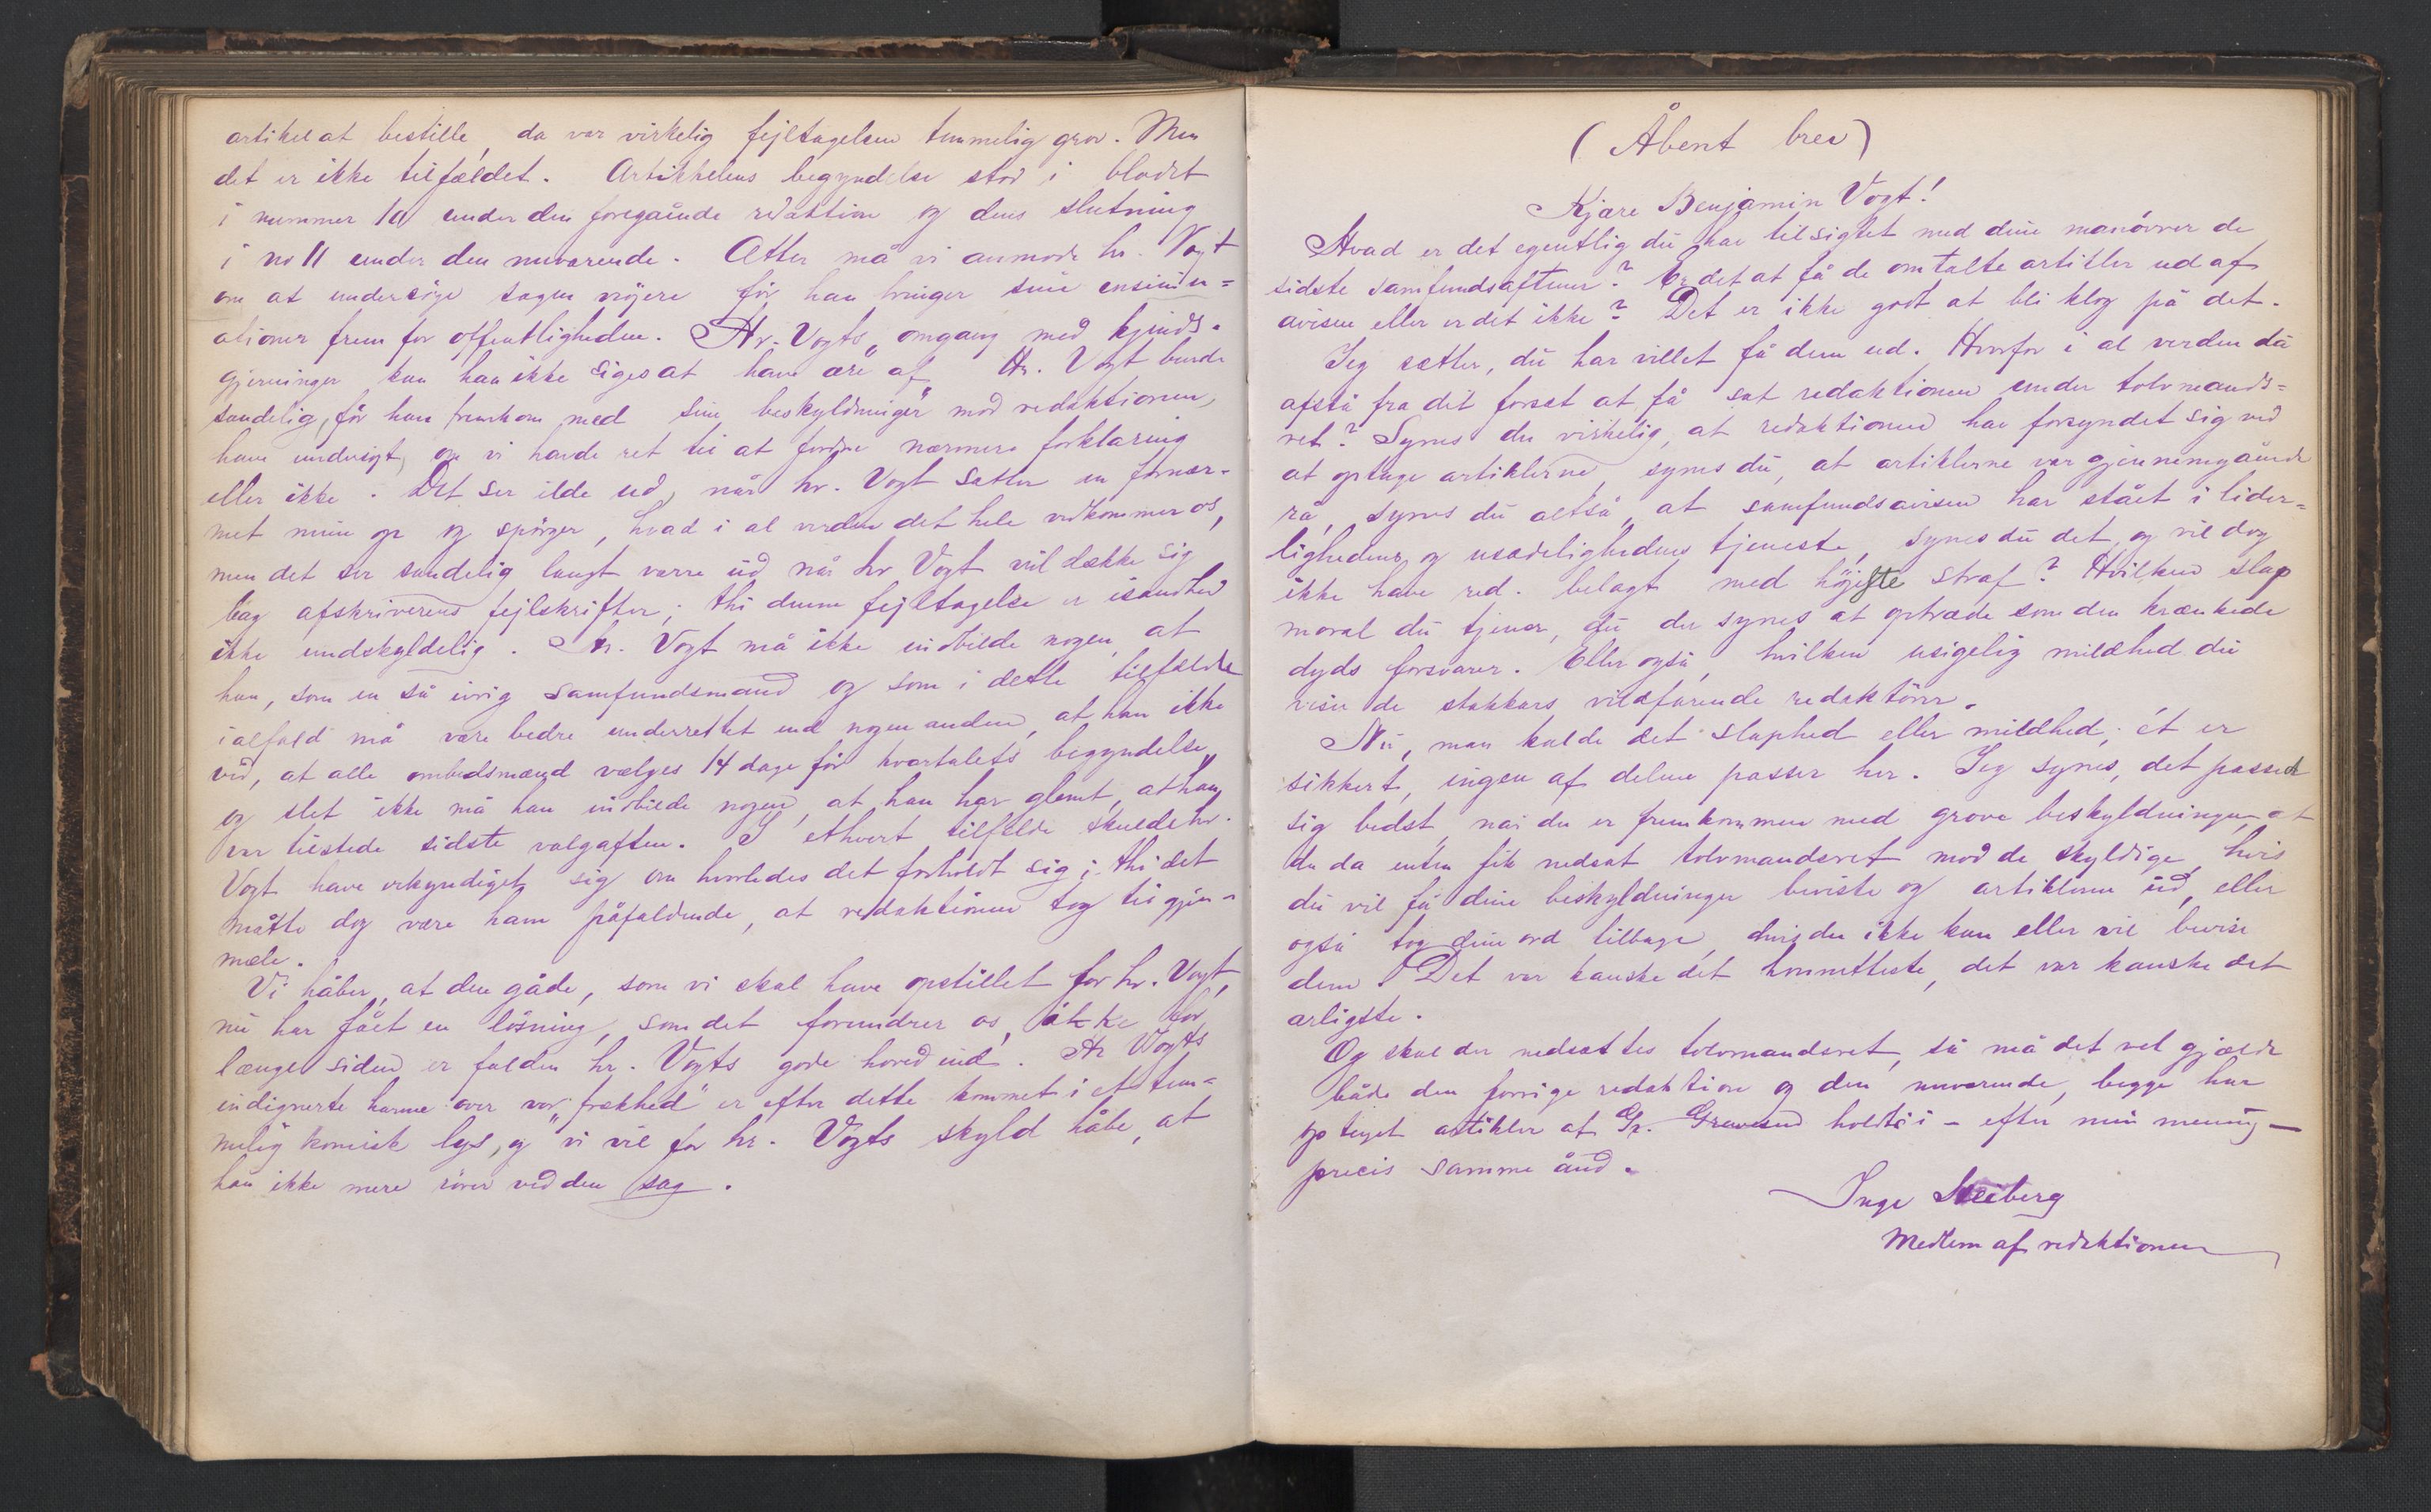 artikel at bestille, da var virkelig fejltagelsen temmelig grov. Men
det er ikke tilfældet. Artikkelens begyndelse stod i bladet
i nummer 10 under den foregående redaktion og dens slutning
i no 11 under den nuværende. Atter må vi anmode hr. Vogt
om at undersöge sagen nöjere för han bringer sine insinu=
ationer frem for offentligheden. Hr. Vogts „omgang med kjends-
gjerninger kan han ikke siges at have ære af“ Hr. Vogt burde
sandelig, för han fremkom med sine beskyldninger mod redaktionen,
have undersögt, om vi havde ret til at fordre nærmere forklaring
eller ikke. Det ser ilde ud, når hr. Vogt sætter en fornær-
met mine op og spörger, hvad i al verden det hele vedkommer os,
men det ser sandelig langt værre ud når hr Vogt vil dække sig
bag afskriverens fejlskrifter; thi denne fejltagelse er isandhed
ikke undskyldelig. Hr. Vogt må ikke indbilde nogen, at
han, som en så ivrig samfundsmand og som i dette tilfælde
ialfald må være bedre underrettet end nogen anden, at han ikke
ved, at alle ombudsmænd vælges 14 dage för kvartalets begyndelse,
og slet ikke må han indbilde nogen, at han har glemt, at han
var tilstede sidste valgaften. I ethvert tilfælde skulde hr.
Vogt have erkyndiget sig om hvorledes det forholdt sig; thi det
måtte dog være ham påfaldende, at redaktionen tog til gjen-
mæle.
Vi håber, at den gåde, som vi skal have opstillet for hr. Vogt,
nu har fået en lösning, som det forundrer os, ikke for
længe siden er falden hr. Vogts gode hoved ind. Hr Vogts
indignerte harme over vor „frækhed“ er efter dette kommet i et tem=
melig komisk lys, og vi vil for hr. Vogts skyld håbe, at
han ikke mere rörer ved den sag.
(Åbent brev)
Kjære Benjamin Vogt!
Hvad er det egentlig du har tilsigtet med dine manövrer de
sidste samfundsaftener? Er det at få de omtalte artikler ud af
avisen eller er det ikke? Det er ikke godt at bli klog på det.
Jeg sætter, du har villet få dem ud. Hvorfor i al verden da
afstå fra dit forsæt at få sat redaktionen under tolvmands=
ret? Synes du virkelig, at redaktionen har forsyndet sig ved
at optage artiklerne, synes du, at artiklerne var gjennemgående
rå, synes du altså, at samfundsavisen har stået i lider=
lighedens og usædelighedens tjeneste, synes du det, og vil dog
ikke have red. belagt med höjeste straf? Hvilken slap
moral du tjener, du der synes at optræde som den krænkede
dyds forsvarer. Eller også, hvilken usigelig mildhed du
viser de stakkars vildfarende redaktörer.
Nu, man kalde det slaphed eller mildhed; ét er
sikkert, ingen af delene passer her. Jeg synes, det passed
sig bedst, når du er fremkommen med grove beskyldninger, at
du da enten fik nedsat tolvmandsret mod de skyldige, hvis
du vil få dine beskyldninger beviste og artiklerne ud, eller
også tog dine ord tilbage, hvis du ikke kan eller vil bevise
dem. Det var kanske det honnetteste, det var kanske det
ærligste.
Og skal der nedsættes tolvmandsret, så må det vel gjælde
både den forrige redaktion og den nuværende, begge har
optaget artikler af Gr. holdt i - efter min mening -
precis samme ånd.
Inge Heiberg
Medlem af redaktionen